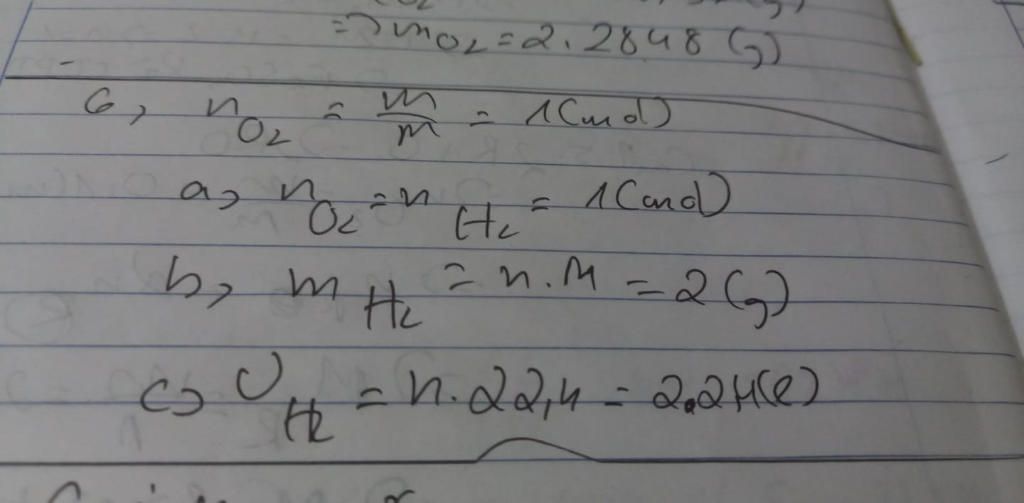 => m O2 = 2.2848 (g)
6, n O2 = m/m = 1 (mol)
a, n O2 = n H2 = 1 (mol)
b, m H2 = n.M = 2 (g)
c, V H2 = n.22,4 = 2.24 (l)